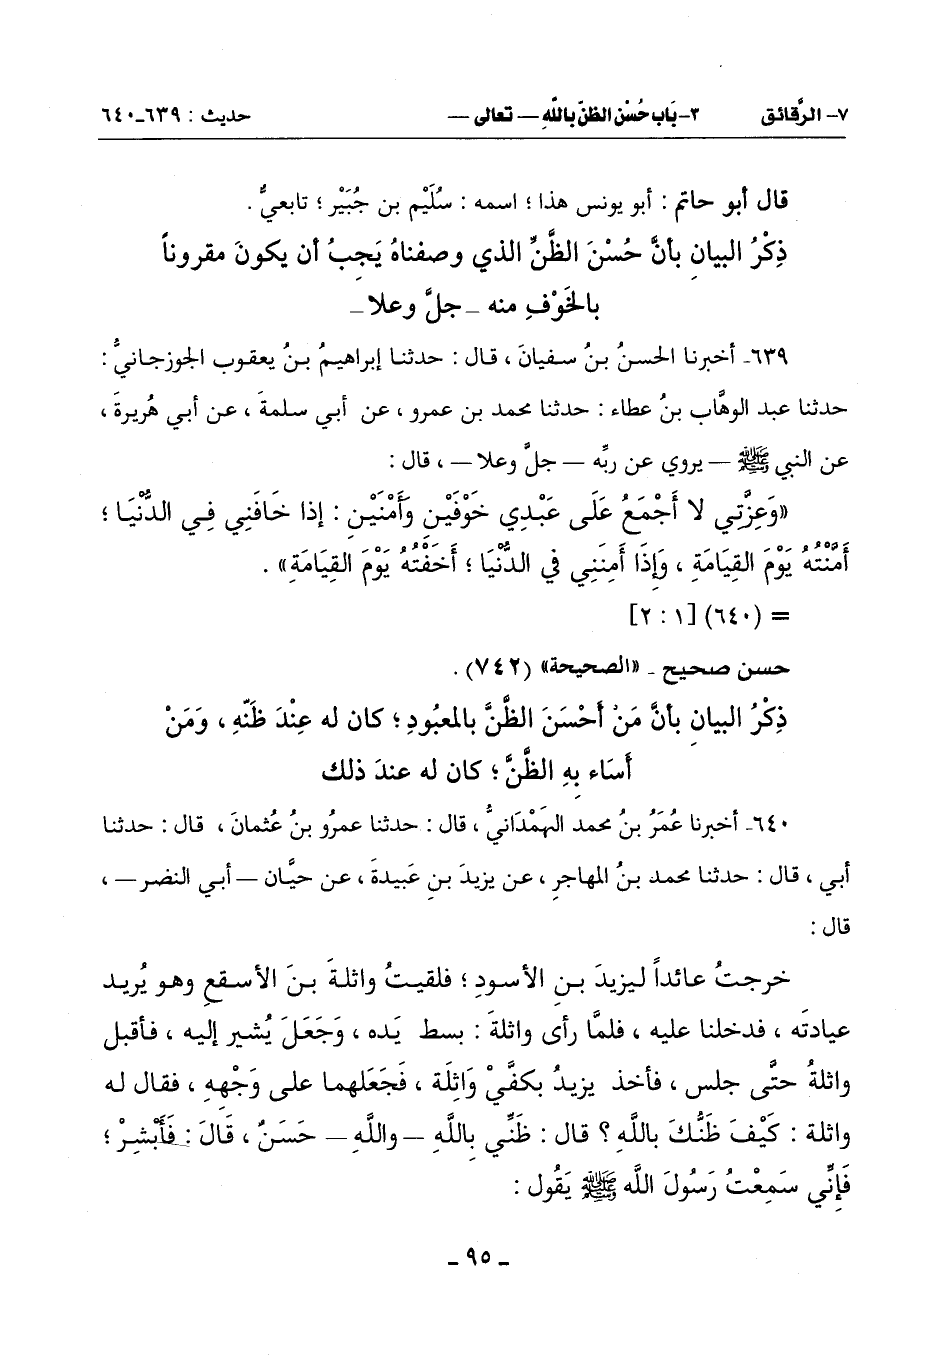 ٧- الرَّقائق ٣- بَاب حُسْن الظنّ باللَّهِ — تعالى — حديث : ٦٣٩-٦٤٠
قال أبو حاتم : أبو يونس هذا ؛ اسمه : سُلَيْم بن جُبَيْر ؛ تابعيٌّ .
ذِكْرُ البيانِ بأنَّ حُسْنَ الظَّنِّ الذي وصفناهُ يَجِبُ أن يكونَ مقروناً
بالخَوْفِ منه - جلَّ وعلا -
٦٣٩- أخبرنا الحسنُ بنُ سفيانَ ، قال : حدثنا إبراهيمُ بنُ يعقوب الجوزجانيُّ :
حدثنا عبد الوهَّاب بنُ عطاء : حدثنا محمد بن عمرو ، عن أبي سلمةَ ، عن أبي هُريرةَ ،
عن النبي ﷺ — يروي عن ربِّه — جلَّ وعلا — ، قال :
«وَعِزَّتِي لا أَجْمَعُ عَلَى عَبْدِي خَوْفَيْنِ وَأَمْنَيْنِ : إذا خَافَنِي فِي الدُّنْيَا ؛
أَمَّنْتُهُ يَوْمَ القِيَامَةِ ، وَإِذَا أَمِنَنِي في الدُّنْيَا ؛ أَخَفْتُهُ يَوْمَ القِيَامَةِ» .
= (٦٤٠) [١ : ٢]
حسن صحيح - «الصحيحة» (٧٤٢) .
ذِكْرُ البيانِ بأنَّ مَنْ أَحْسَنَ الظَّنَّ بالمعبُودِ ؛ كان له عِنْدَ ظَنِّهِ ، وَمَنْ
أَسَاء بِهِ الظَّنَّ ؛ كان له عندَ ذلك
٦٤٠- أخبرنا عُمَرُ بنُ محمد الهَمْدَانيُّ ، قال : حدثنا عمرُو بنُ عُثمانَ ، قال : حدثنا
أبي ، قال : حدثنا محمد بنُ المهاجرِ ، عن يزيدَ بنِ عَبِيدةَ ، عن حيَّان — أبي النضر — ،
قال :
خرجتُ عائداً ليزيدَ بنِ الأسودِ ؛ فلقيتُ واثلةَ بنَ الأسقعِ وهو يُريد
عيادتَه ، فدخلنا عليه ، فلمَّا رأى واثلةَ : بسط يَدَه ، وَجَعَلَ يُشير إليه ، فأقبل
واثلةُ حتَّى جلس ، فأخذ يزيدُ بكفَّيْ وَاثِلَة ، فَجَعَلهما على وَجْهِهِ ، فقال له
واثلة : كَيْفَ ظَنُّكَ باللَّهِ ؟ قال : ظَنِّي باللَّهِ — واللَّهِ — حَسَنٌ ، قَالَ : فَأَبْشِرْ ؛
فَإِنِّي سَمِعْتُ رَسُولَ اللَّه ﷺ يَقُول :
- ٩٥ -